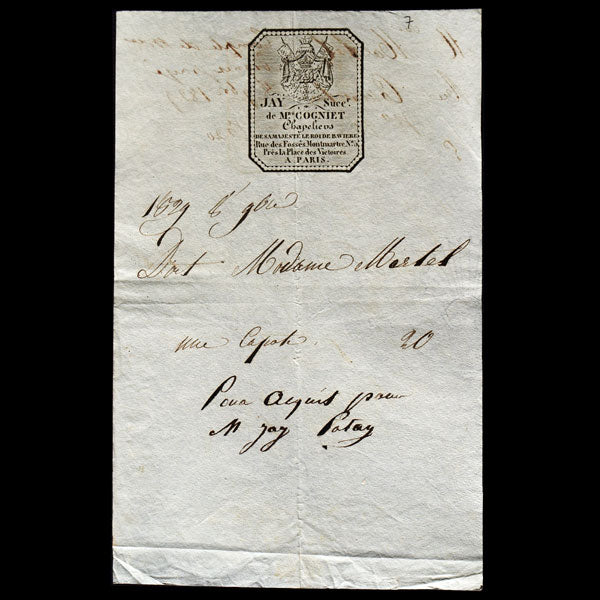 7
JAY Succr.
de Mme COGNIET
Chapeliers
DE SA MAJESTÉ LE ROI DE BAVIERE
Rue des Fossés Montmartre, No. 5,
Près la Place des Victoires
A PARIS.
1829 9bre
Doit Madame Martel
une Capote 20
Pour Acquis pour
M Jay Patay